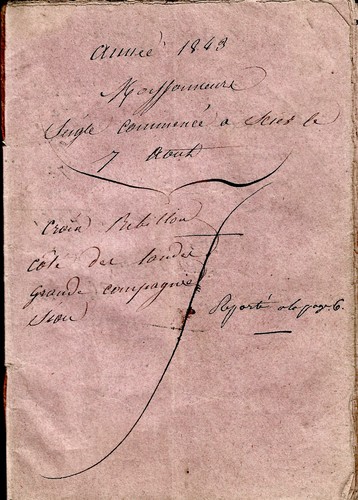 Année 1843
Moissonneurs
Seigle commencé a Scier le
7 Août
Croix Rebillon
côte des landes
grande compagnie
Sion
Reporté a la page 6.